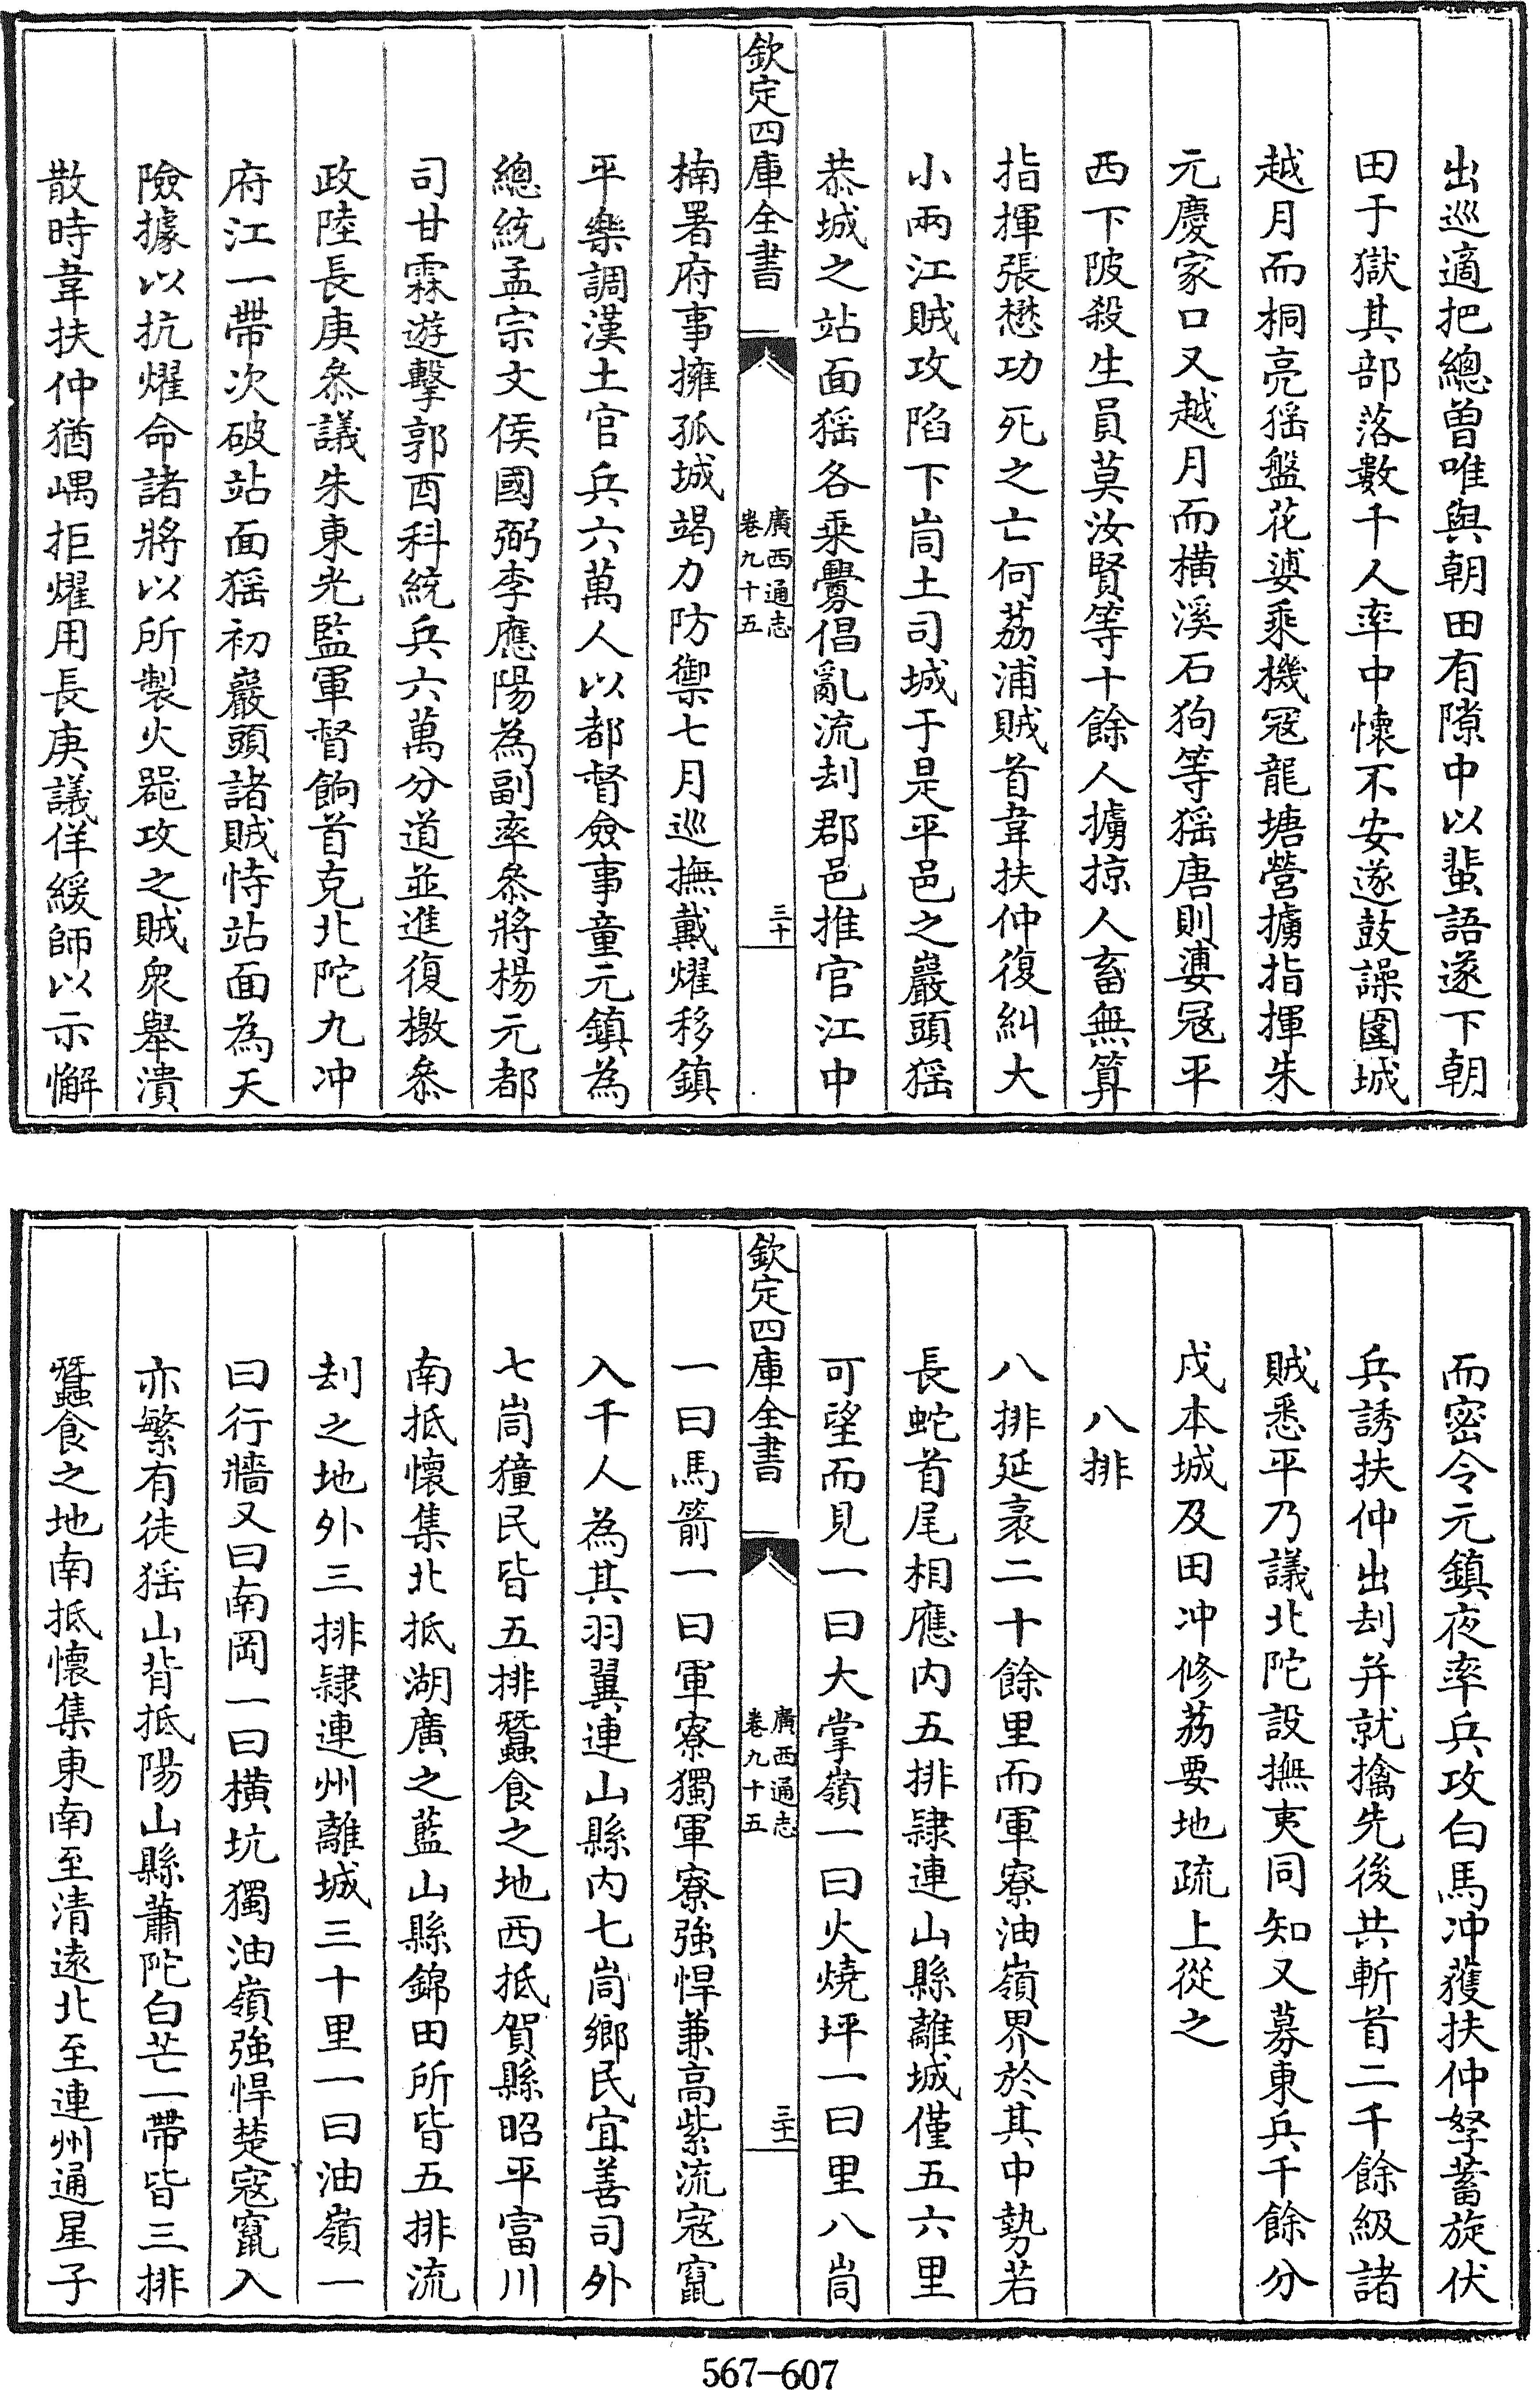 出巡適把總曽唯與朝田有隙中以蜚語遂下朝
田于獄其部落數千人率中懷不安遂鼓譟圍城
越月而桐亮猺盤花婆乘機冦龍塘營擄指揮朱
元慶家口又越月而横溪石狗等猺唐則婆冦平
西下陂殺生員莫汝賢等十餘人擄掠人畜無算
指揮張懋功死之亡何荔浦賊首韋扶仲復糾大
小兩江賊攻陷下峝土司城于是平邑之巖頭猺
恭城之站面猺各乘釁倡亂流刦郡邑推官江中
欽定四庫全書
廣西通志
卷九十五
三十
楠署府事擁孤城竭力防禦七月巡撫戴燿移鎮
平樂調漢土官兵六萬人以都督僉事童元鎮為
總統孟宗文侯國弼李應陽為副率叅將楊元都
司甘霖遊擊郭酉科統兵六萬分道並進復檄叅
政陸長庚叅議朱東光監軍督餉首克北陀九冲
府江一帶次破站面猺初巖頭諸賊恃站面為天
險據以抗燿命諸將以所製火噐攻之賊衆舉潰
散時韋扶仲猶嵎拒燿用長庚議佯緩師以示懈
而密令元鎮夜率兵攻白馬冲獲扶仲孥蓄旋伏
兵誘扶仲出刦并就擒先後共斬首二千餘級諸
賊悉平乃議北陀設撫夷同知又募東兵千餘分
戍本城及田冲修荔要地疏上從之
八排
八排延袤二十餘里而軍寮油嶺界於其中勢若
長蛇首尾相應内五排隷連山縣離城僅五六里
可望而見一曰大掌嶺一曰火燒坪一曰里八峝
欽定四庫全書
廣西通志
卷九十五
三十一
一曰馬箭一曰軍寮獨軍寮強悍兼高紫流寇竄
入千人為其羽翼連山縣内七峝鄉民宜善司外
七峝獞民皆五排蠶食之地西抵賀縣昭平富川
南抵懷集北抵湖廣之藍山縣錦田所皆五排流
刦之地外三排隷連州離城三十里一曰油嶺一
曰行牆又曰南岡一曰横坑獨油嶺強悍楚寇竄入
亦繁有徒猺山背抵陽山縣蕭陀白芒一帶皆三排
蠶食之地南抵懷集東南至清遠北至連州通星子
567-607